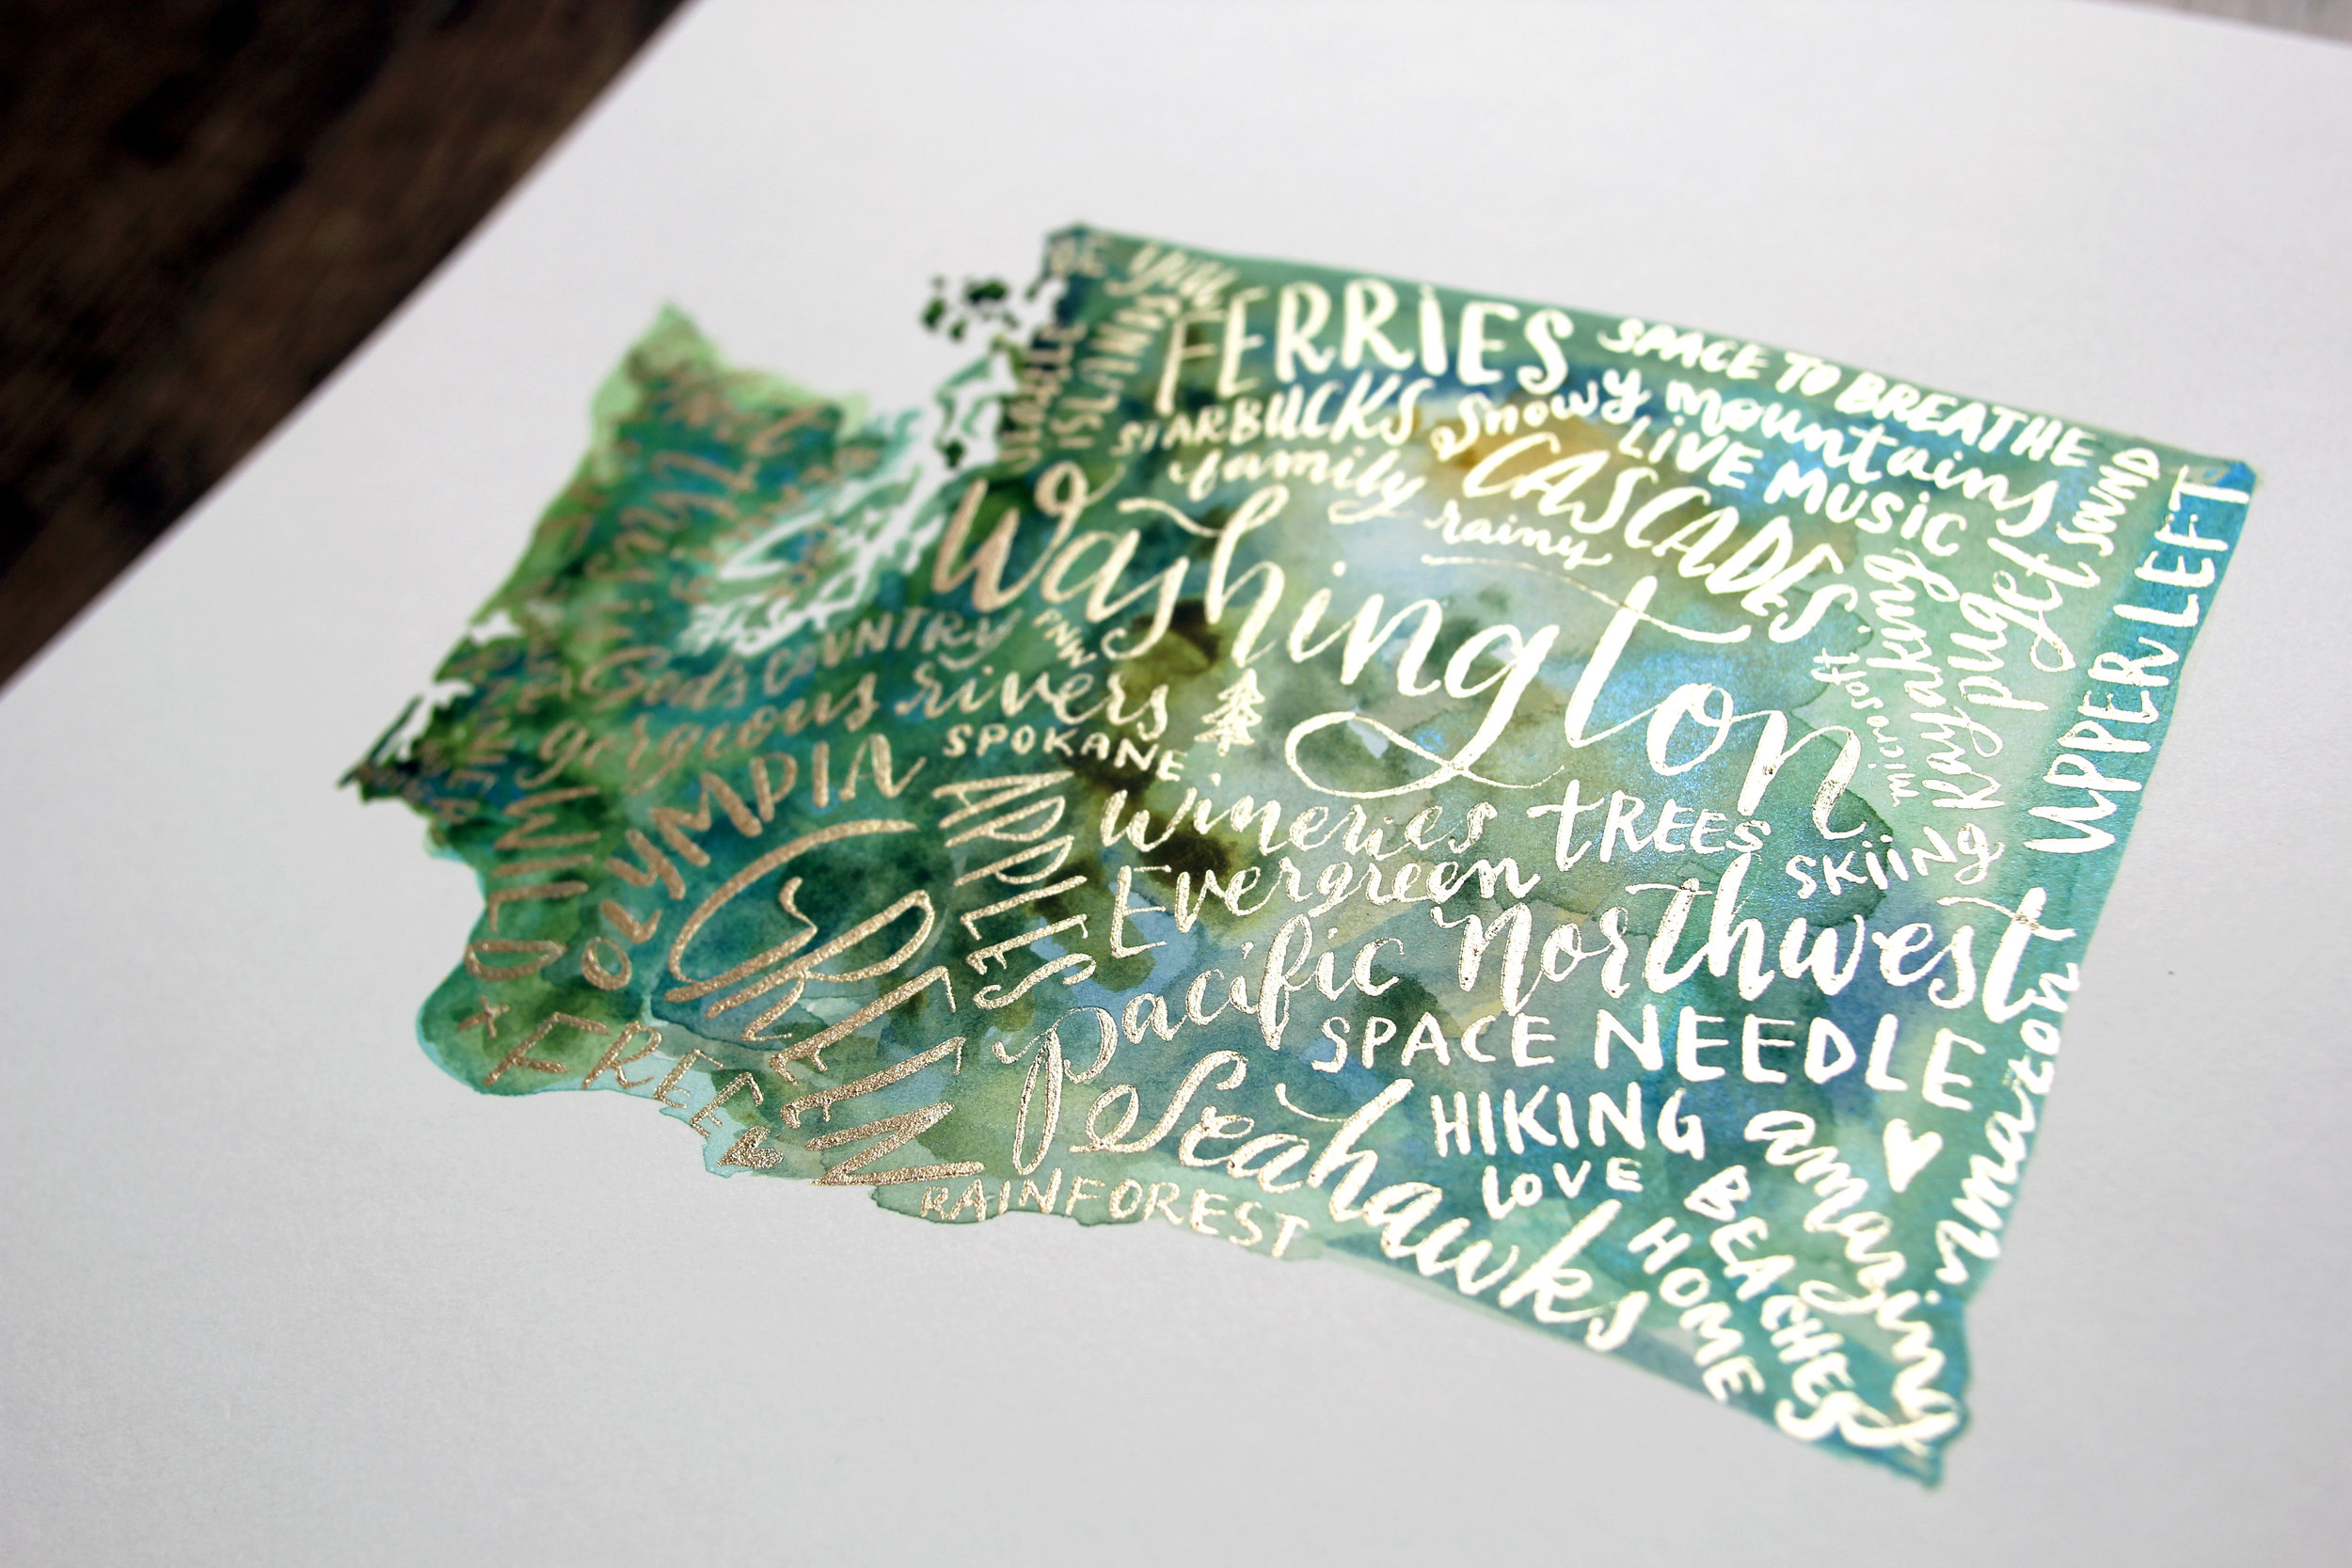 BE you
FERRIES
SPACE TO BREATHE
SEATTLE
ISLANDS
STARBUCKS
Snowy mountains
family
CASCADES
LIVE MUSIC
rainy
puget sound
UPPER LEFT
Washington
kayaking
microsoft
God's COUNTRY
PNW
gorgeous rivers
SPOKANE
OLYMPIA
APPLES
wineries
TREES
SKIING
Evergreen
GREEN
Pacific Northwest
WILD + FREE
SPACE NEEDLE
amazon
Seahawks
HIKING
amazing
LOVE
BEACHES
HOME
RAINFOREST